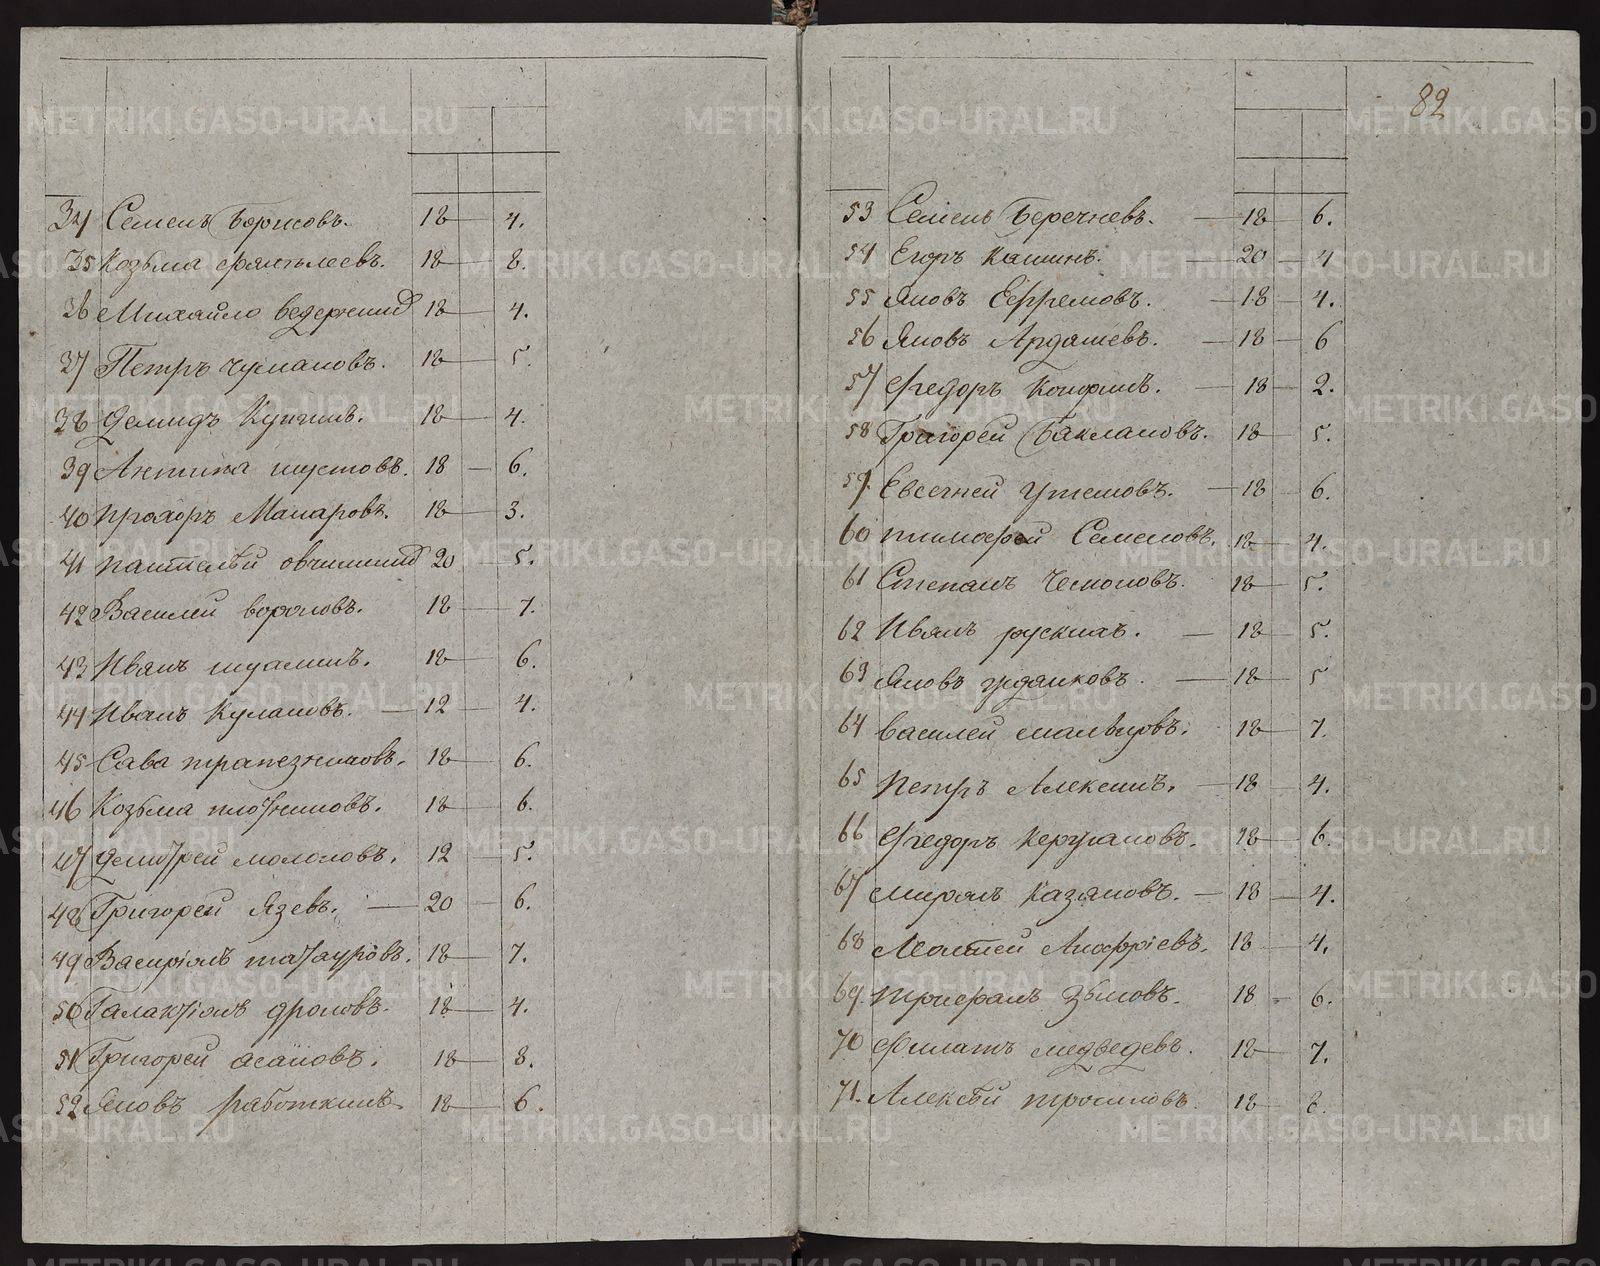 34 Семенъ Борисовъ. 18 — 4.
35 Козьма 18 — 8.
36 Михайло 18 — 4.
37 Петръ Чумаковъ. 18 — 5.
38 Демидъ 18 — 4.
39 Антипа шустовъ. 18 — 6.
40 прохоръ Макаровъ. 18 — 3.
41 пантелѣй 20 — 5.
42 Василей вороновъ. 18 — 7.
43 Иванъ 18 — 6.
44 Иванъ Кулаковъ. — 12 — 4.
45 Сава трапезниковъ. 18 — 6.
46 Козьма плотниковъ. 18 — 6.
47 Демитрей молоковъ. 12 — 5.
48 Григорей Язевъ. — 20 — 6.
49 татауровъ. 18 — 7.
50 Галактіонъ 18 — 4.
51 Григорей асановъ. 18 — 8.
52 Яковъ работкинъ. 18 — 6.
82
53 Семенъ Беречневъ. — 18 — 6.
54 Егоръ Кашинъ. — 20 — 4
55 Яковъ Ефремовъ. — 18 — 4.
56 Яковъ Ардашевъ. — 18 — 6
57 Федоръ — 18 — 2.
58 Григорей Баклановъ. 18 — 5.
59. Евсегней Утемовъ. — 18 — 6.
60 тимофей Семеновъ. 18 — 4.
61 Степанъ 18 — 5.
62 Иванъ — 18 — 5.
63 Яковъ — 18 — 5
64 василей малѣцовъ. 18 — 7.
65 петръ Алексинъ. — 18 — 4.
66 Федоръ 18 — 6.
67 миронъ Казаковъ. — 18 — 4.
68 18 — 4.
69. трифанъ Зыковъ. 18 — 6.
70 Филатъ медведевъ. 18 — 7.
71. Алексѣй трошковъ. 18 — 8.
METRIKI.GASO-URAL.RU